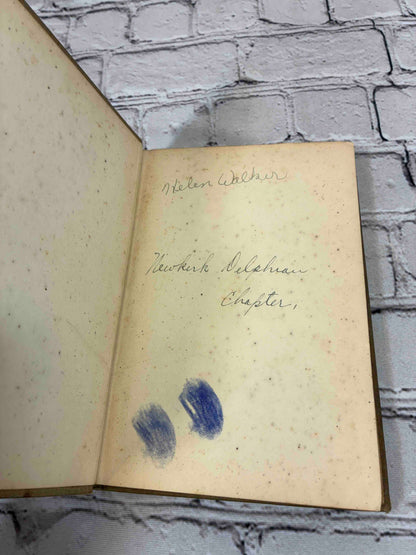 Helen Walker
Newkirk Delphian
Chapter,